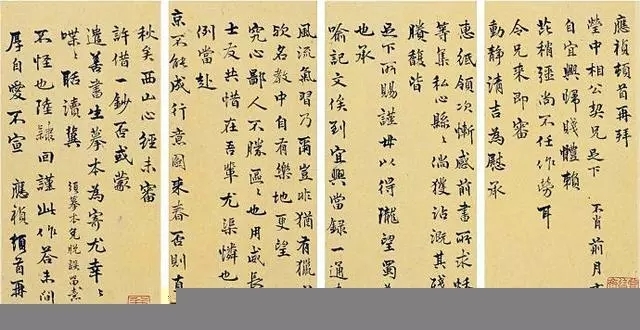 應禎頓首再拜
瑩中相公契兄足下 不肖前月
自宜興歸賤體賴
芘稍 尚不任作勞耳
令兄來即審
動静清吉為慰承
惠紙領次慚感前書所求
等集私心縣〻倘獲沾溉其殘
賸馥皆
足下所賜謹毋以得隴望蜀
也承
喻記文俟到宜興當録一通
風流氣習乃爾豈非猶有獵
欤名教中自有樂地更望
究心鄙人不勝區〻也用威長
士友共惜在吾輩尤渠憐也
例當赴
京不能成行意圖來春否則直
秋矣西山心經未審
許借一鈔否或蒙
遣善書生摹本為寄尤幸〻
喋〻聒瀆冀 須摹本免脱誤留意
不怪也陸隸回謹此作答未間
厚自愛不宣 應禎頓首再